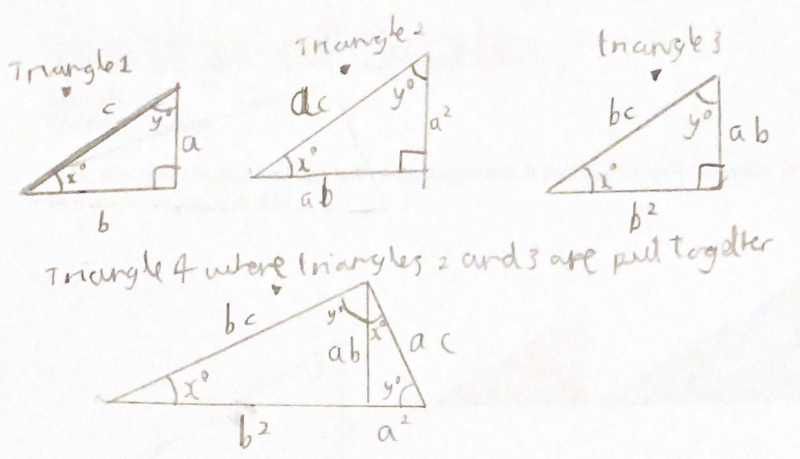 Triangle 1
Triangle 2
triangle 3
c
y°
a
x°
b
ac
y°
a²
x°
ab
bc
y°
ab
x°
b²
Triangle 4 where triangles 2 and 3 are put together
bc
y°
x°
ab
ac
x°
y°
b²
a²